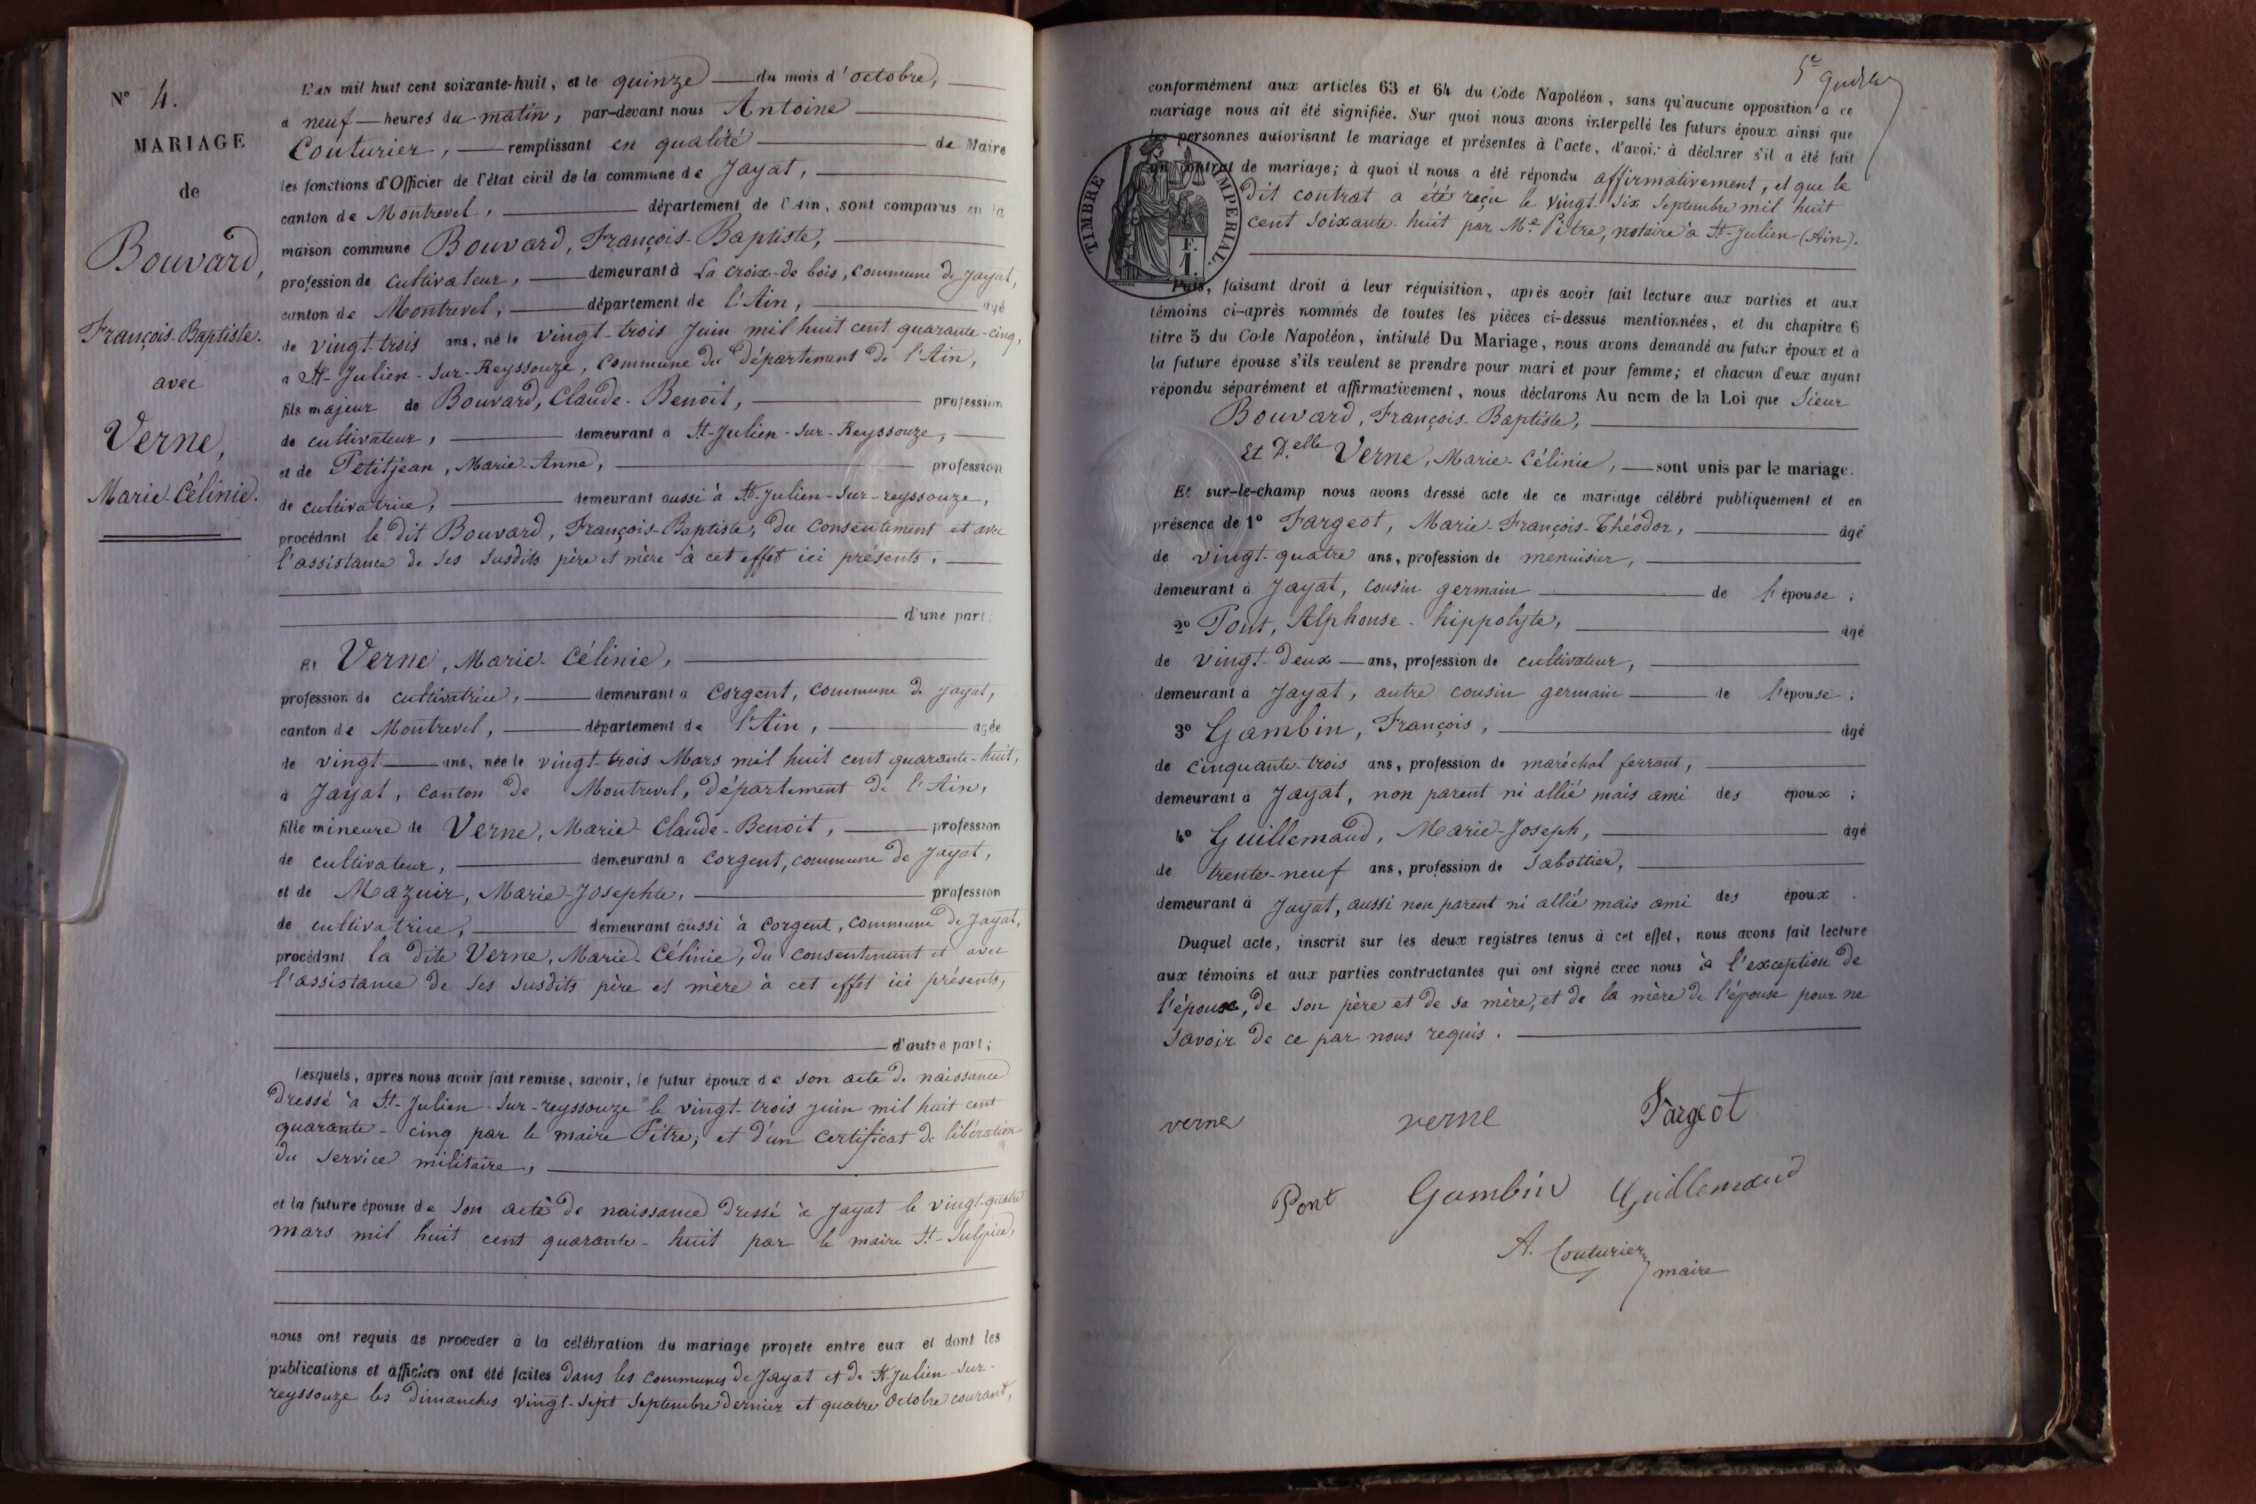 N° 4.
MARIAGE
de
Bouvard,
François-Baptiste.
avec
Verne,
Marie-Célinie.
L'an mil huit cent soixante-huit, et le quinze du mois d'octobre,
à neuf heures du matin, par-devant nous Antoine
Couturier, remplissant en qualité de Maire
les fonctions d'Officier de l'état civil de la commune de Jayat,
canton de Montrevel, département de l'Ain, sont comparus en la
maison commune Bouvard, François-Baptiste,
profession de cultivateur, demeurant à La croix-de bois, commune de Jayat,
canton de Montrevel, département de l'Ain, âgé
de vingt-trois ans, né le vingt-trois Juin mil huit cent quarante-cinq,
à St-Julien-sur-Reyssouze, commune du département de l'Ain,
fils majeur de Bouvard, Claude-Benoit, profession
de cultivateur, demeurant à St-Julien-sur-Reyssouze,
et de Petitjean, Marie-Anne, profession
de cultivatrice, demeurant aussi à St-Julien-sur-reyssouze,
procédant le dit Bouvard, François-Baptiste, du consentement et avec
l'assistance de ses susdits père et mère à cet effet ici présents,
d'une part;
Et Verne, Marie-Célinie,
profession de cultivatrice, demeurant à Corgent, commune de Jayat,
canton de Montrevel, département de l'Ain, âgée
de vingt ans, née le vingt-trois Mars mil huit cent quarante-huit,
à Jayat, canton de Montrevel, département de l'Ain,
fille mineure de Verne, Marie-Claude-Benoit, profession
de cultivateur, demeurant à Corgent, commune de Jayat,
et de Mazuir, Marie-Josephte, profession
de cultivatrice, demeurant aussi à Corgent, commune de Jayat,
procédant la dite Verne, Marie-Célinie, du consentement et avec
l'assistance de ses susdits père et mère à cet effet ici présents,
d'autre part;
Lesquels, après nous avoir fait remise, savoir, le futur époux de son acte de naissance
dressé à St-Julien-sur-reyssouze le vingt-trois juin mil huit cent
quarante-cinq par le maire Pitre; et d'un certificat de libération
du service militaire,
et la future épouse de son acte de naissance dressé à Jayat le vingt-quatre
mars mil huit cent quarante-huit par le maire St-Sulpice,
nous ont requis de procéder à la célébration du mariage projeté entre eux et dont les
publications et affiches ont été faites dans les communes de Jayat et de St Julien-sur-
reyssouze les dimanches vingt-sept septembre dernier et quatre octobre courant,
conformément aux articles 63 et 64 du Code Napoléon, sans qu'aucune opposition à ce
mariage nous ait été signifiée. Sur quoi nous avons interpellé les futurs époux ainsi que
les personnes autorisant le mariage et présentes à l'acte, d'avoir à déclarer s'il a été fait
un contrat de mariage; à quoi il nous a été répondu affirmativement, et que le
dit contrat a été reçu le vingt-six septembre mil huit
cent soixante-huit par Me Pitre, notaire à St-Julien (Ain).
TIMBRE IMPÉRIAL.
F.
1.
Puis, faisant droit à leur réquisition, après avoir fait lecture aux parties et aux
témoins ci-après nommés de toutes les pièces ci-dessus mentionnées, et du chapitre 6
titre 5 du Code Napoléon, intitulé Du Mariage, nous avons demandé au futur époux et à
la future épouse s'ils veulent se prendre pour mari et pour femme; et chacun d'eux ayant
répondu séparément et affirmativement, nous déclarons Au nom de la Loi que Sieur
Bouvard, François-Baptiste,
Et D.elle Verne, Marie-Célinie, sont unis par le mariage.
Et sur-le-champ nous avons dressé acte de ce mariage célébré publiquement et en
présence de 1° Fargeot, Marie-François-Théodor, âgé
de vingt-quatre ans, profession de menuisier,
demeurant à Jayat, cousin germain de l'épouse;
2° Pont, Alphonse-hippolyte, âgé
de vingt-deux ans, profession de cultivateur,
demeurant à Jayat, autre cousin germain de l'épouse;
3° Gambin, François, âgé
de cinquante-trois ans, profession de maréchal ferrant,
demeurant à Jayat, non parent ni allié mais ami des époux;
4° Guillemaud, Marie-Joseph, âgé
de trente-neuf ans, profession de sabottier,
demeurant à Jayat, aussi non parent ni allié mais ami des époux.
Duquel acte, inscrit sur les deux registres tenus à cet effet, nous avons fait lecture
aux témoins et aux parties contractantes qui ont signé avec nous à l'exception de
l'époux, de son père et de sa mère, et de la mère de l'épouse pour ne
savoir de ce par nous requis.
verne verne Fargeot
Pont Gambin Guillemaud
A. Couturier
maire